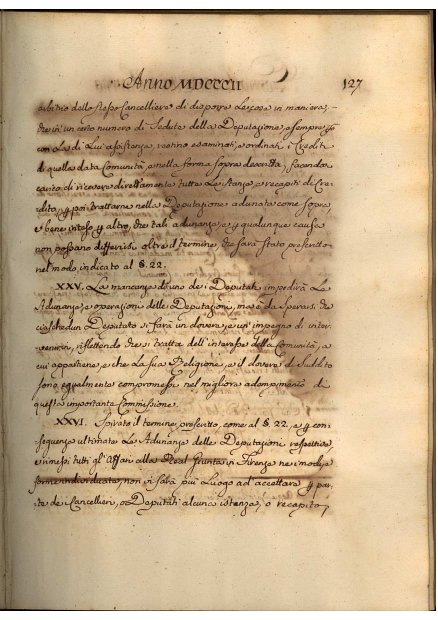 Anno MDCCCII 127
arbitrio dello stesso Cancelliere di disporre le cose in maniera,
che in un certo numero di Sedute della Deputazione, e sempre
con la di Lui assistenza, restino esaminati, e ordinati i Crediti
di quella data Comunità, e nella forma sopra descritta, facendosi
carico di ricevere direttamente tutte le Istanze, e recapiti di Cre=
dito, e poi trattarne nella Deputazione adunata come sopra,
e bene inteso altro, che tali adunanze, qualunque causa
non possano differirsi oltre il termine, che sarà stato prescritto
nel modo indicato al §. 22.
XXV. La mancanza di uno dei Deputati impedirà le
Adunanze, e operazioni delle Deputazioni, ma è da sperarsi che
ciaschedun Deputato si farà un dovere, e un' impegno di inter=
venirvi, riflettendo che si tratta dell' interesse della Comunità, a
cui appartiene, e che la sua Religione, e il dovere di Suddito
sono egualmente compromessi nel migliore adempimento di
questa importante Commissione.
XXVI. Spirato il termine prescritto, come al §. 22, e con
seguenza ultimate le Adunanze delle Deputazioni respettive,
e rimessi tutti gl' Affari alla Real Giunta in Firenze nei modi, e
forme individuate, non vi sarà più luogo ad accettare par
te dei Cancellieri, o Deputati alcuna istanza, o recapito,